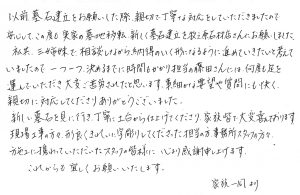 以前墓石建立をお願いした際、親切で丁寧な対応をしていただきましたので
安心して、この度も実家の墓地移転、新しく墓石建立を秋田原石材店さんにお願いしました
私共、三姉妹で相談しながら納得のいく形になるように進めていきたいと考えて
いましたが一つ一つ決めるまでに時間もかかり担当の藤田さんには何度も足を
運んでいただき大変ご苦労されたと思います。事細かな要望や質問にも快く
親切に対応してくださりありがとうございました。
新しい墓石を見に行き、丁寧に工台から仕上げてくださり家族皆で大変喜んでおります
現場工事の方々、形良くきれいに字彫りしてくださった担当の方事務所スタッフの方々、
施工に携わっていただいたスタッフの皆様に、心より感謝申し上げます。
これからも宜しくお願いいたします。
家族一同より